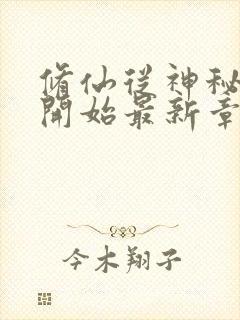 脩仙從神秘
開始最新章
今木翔子